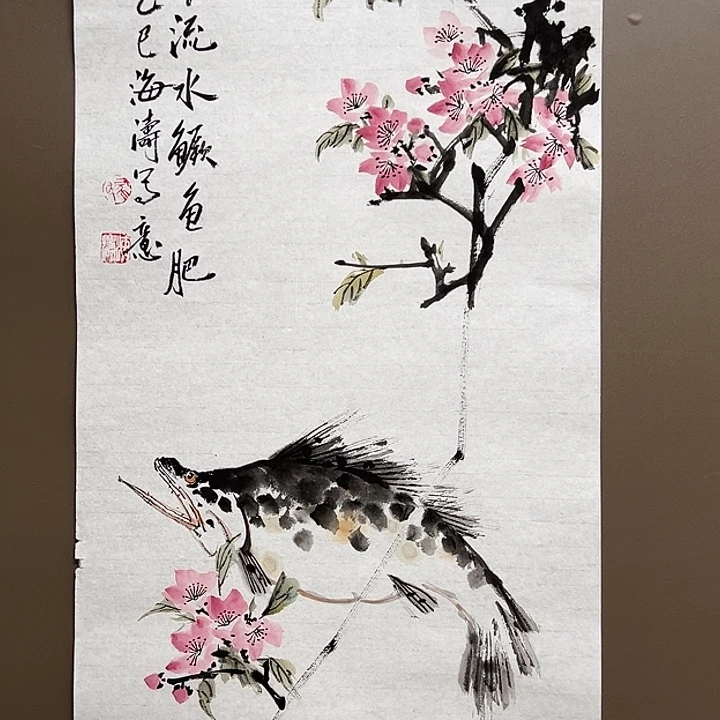 流水鳜鱼肥
乙巳海涛写意